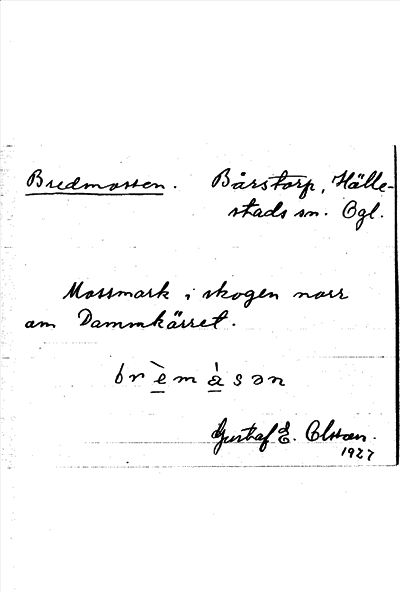 Bredmossen. Bårstorp, Hälle-
stads sn. Ögl.
Mossmark i skogen norr
om Dammkärret.
brèmàsən
Gustaf E. Olsson.
1927